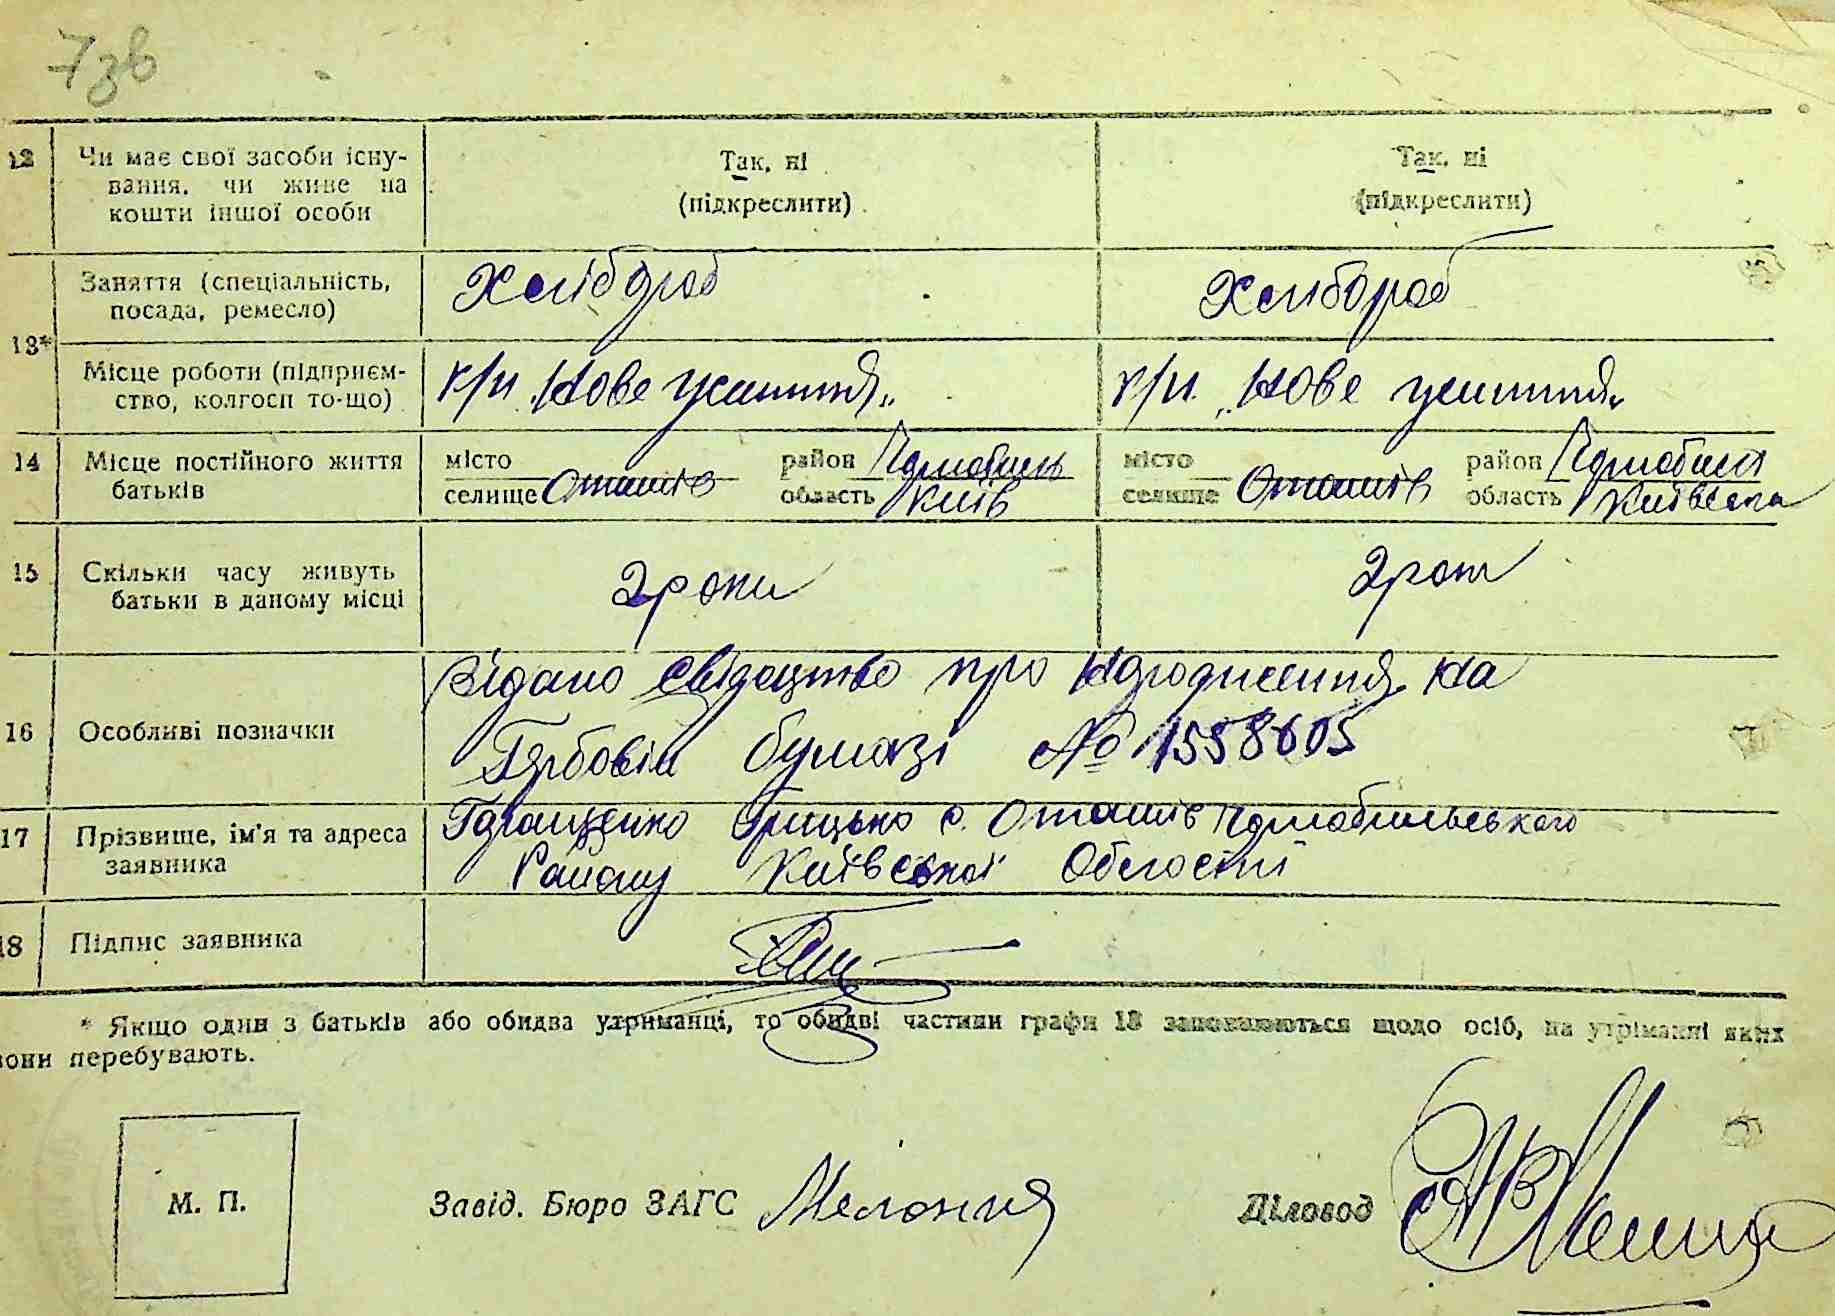 7зв
12 Чи має свої засоби існу-
вання, чи живе на
кошти іншої особи
Так, ні
(підкреслити)
Так, ні
(підкреслити)
13*
Заняття (спеціальність,
посада, ремесло)
Хлібороб
Хлібороб
Місце роботи (підприєм-
ство, колгосп то-що)
к/г „Нове життя„
к/г. „Нове життя„
14 Місце постійного життя
батьків
місто
селище Оташів
район
область Київ
місто
селище Оташів
район
область Київська
15 Скільки часу живуть
батьки в даному місці
2 роки
2 роки
16 Особливі позначки
Видано свідоцтво про народження на
Гербовій бумазі № 1558605
17 Прізвище, ім'я та адреса
заявника
Геращенко Грицько с. Оташів Чорнобильського
Району Київської Області
18 Підпис заявника
* Якщо один з батьків або обидва утриманці, то обидві частини графи 13 заповнюються щодо осіб, на утриманні яких
вони перебувають.
М. П.
Завід. Бюро ЗАГС
Діловод